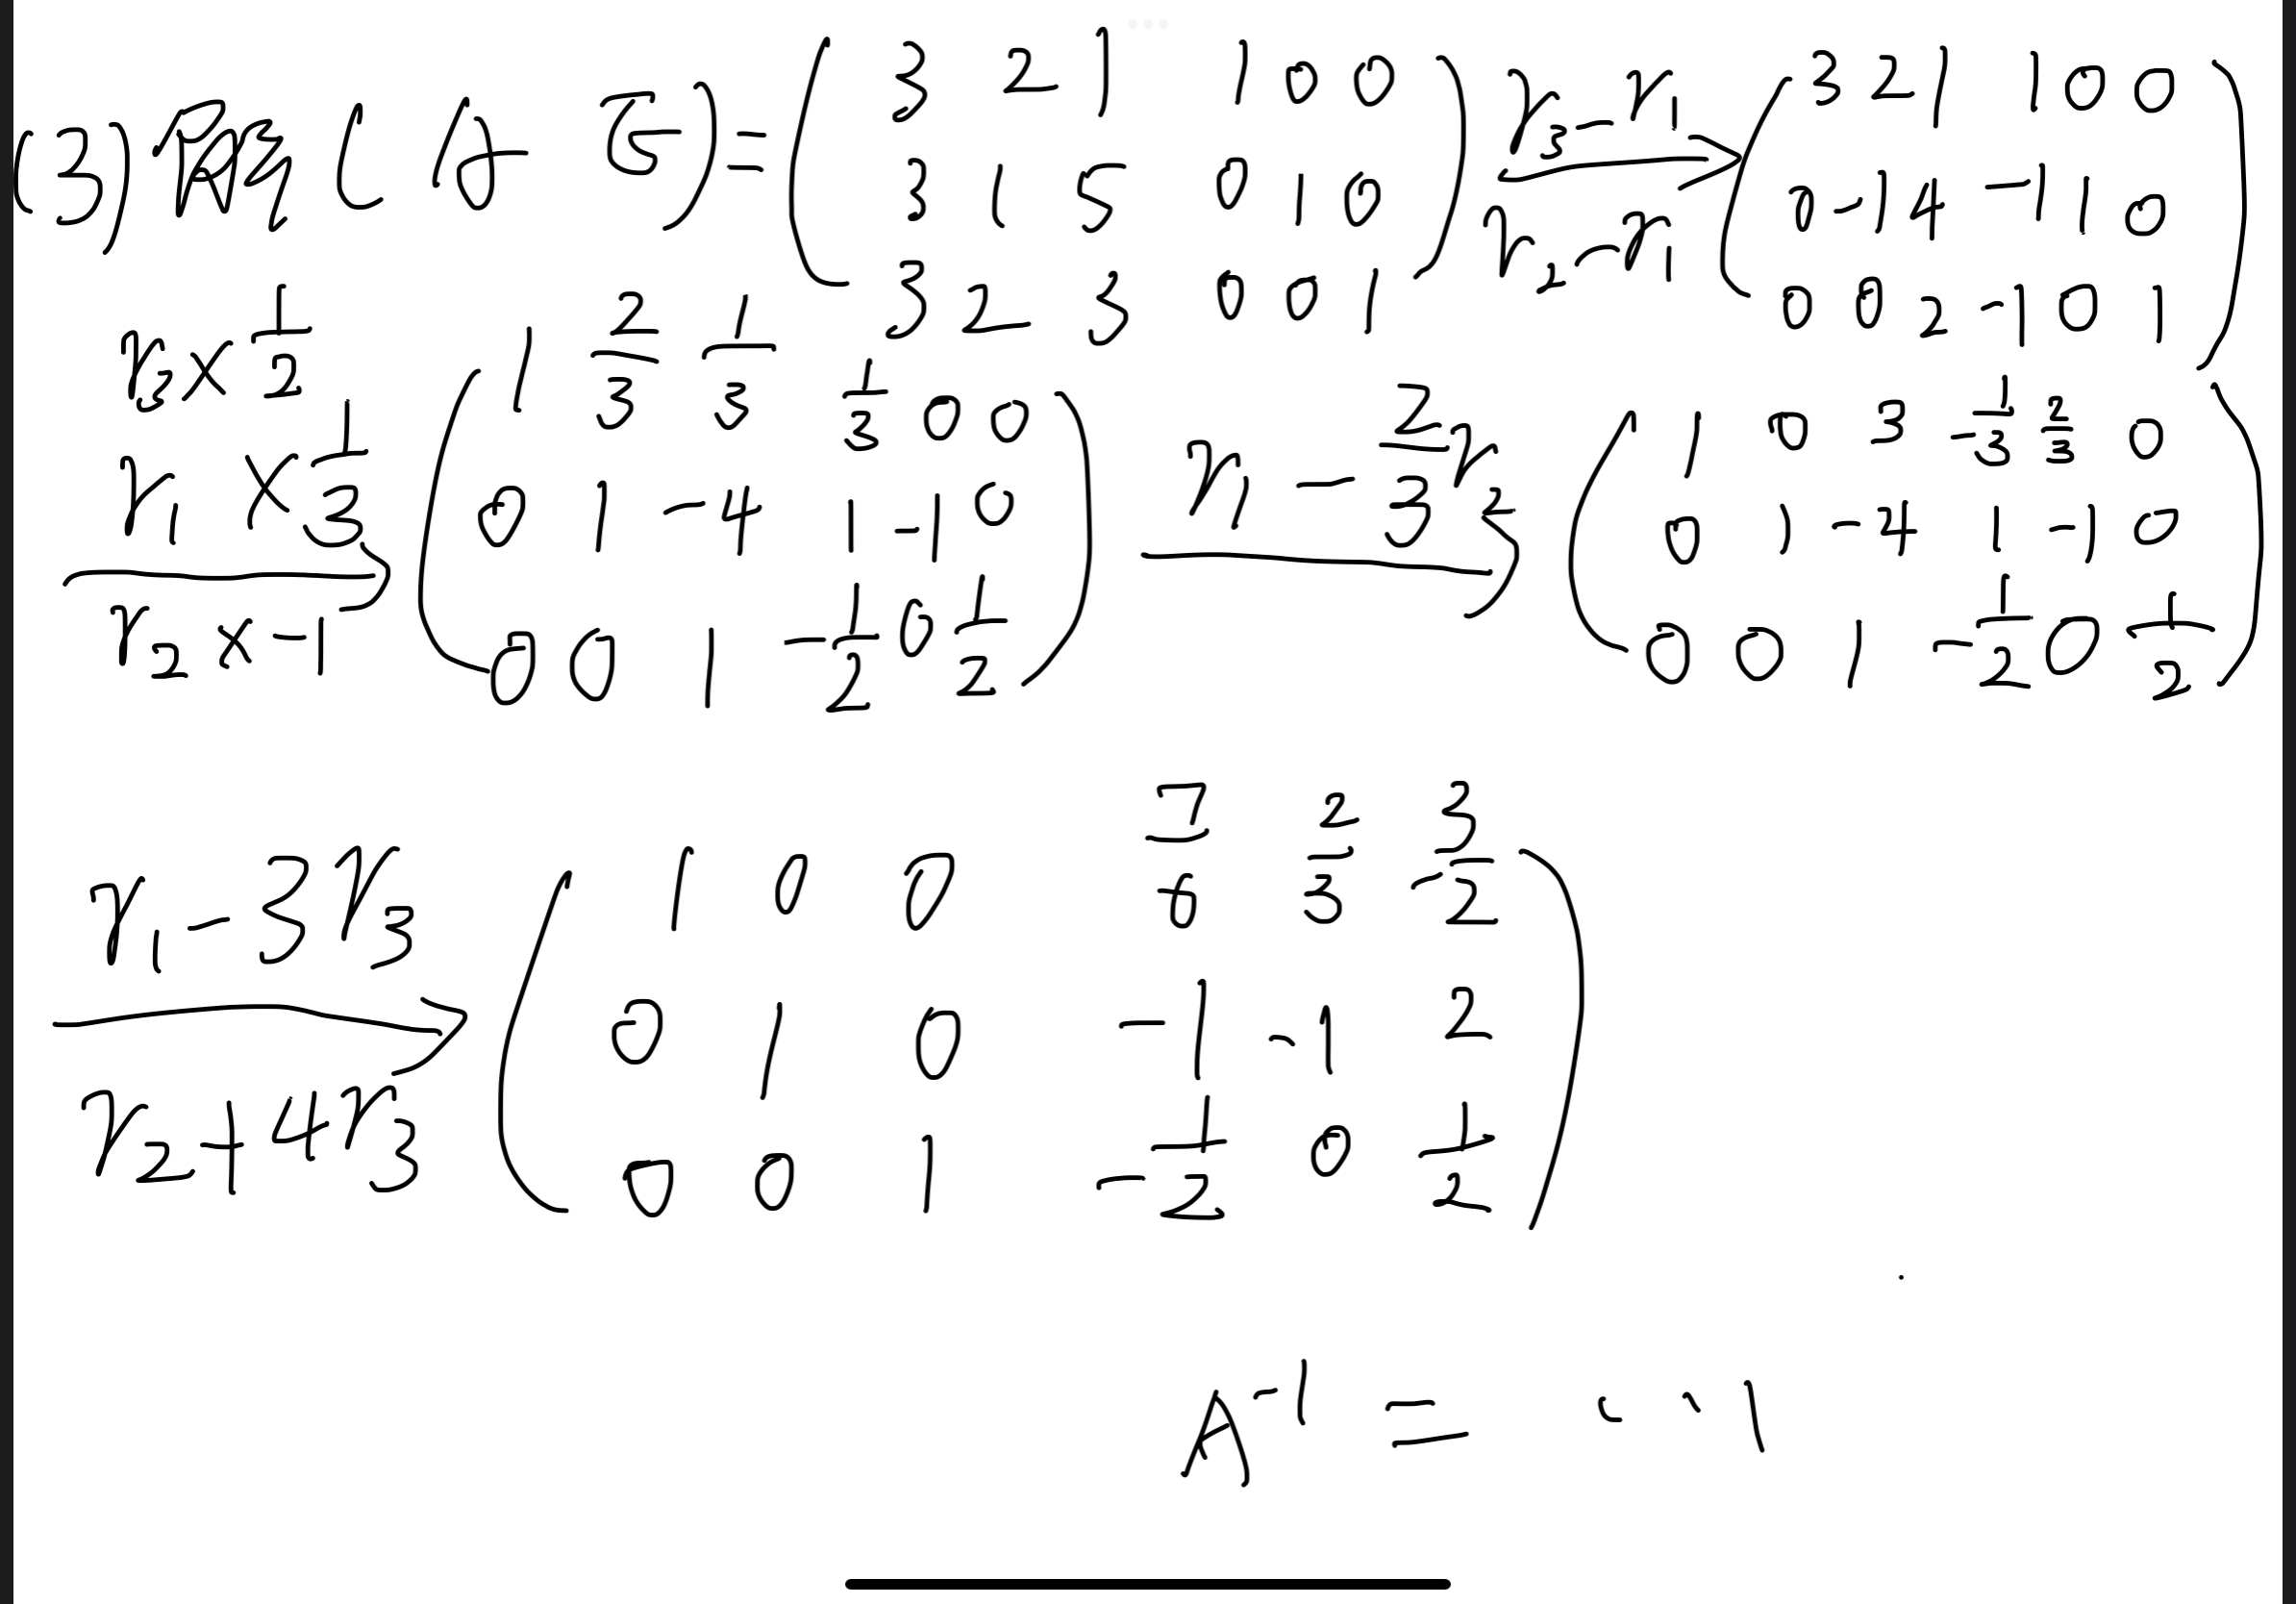 (3) 解 (A E) = ( 3 2 1 1 0 0
3 1 5 0 1 0
3 2 3 0 0 1 ) r₃-r₁ r₂-r₁ → ( 3 2 1 1 0 0
0 -1 4 -1 1 0
0 0 2 -1 0 1 )
r₃×1/2 r₁×1/3 r₂×-1 → ( 1 2/3 1/3 1/3 0 0
0 1 -4 1 -1 0
0 0 1 -1/2 0 1/2 ) r₁-2/3r₂ → ( 1 0 3 -1/3 2/3 0
0 1 -4 1 -1 0
0 0 1 -1/2 0 1/2 )
r₁-3r₃ r₂+4r₃ → ( 1 0 0 7/6 2/3 -3/2
0 1 0 -1 -1 2
0 0 1 -1/2 0 1/2 )
A⁻¹ =